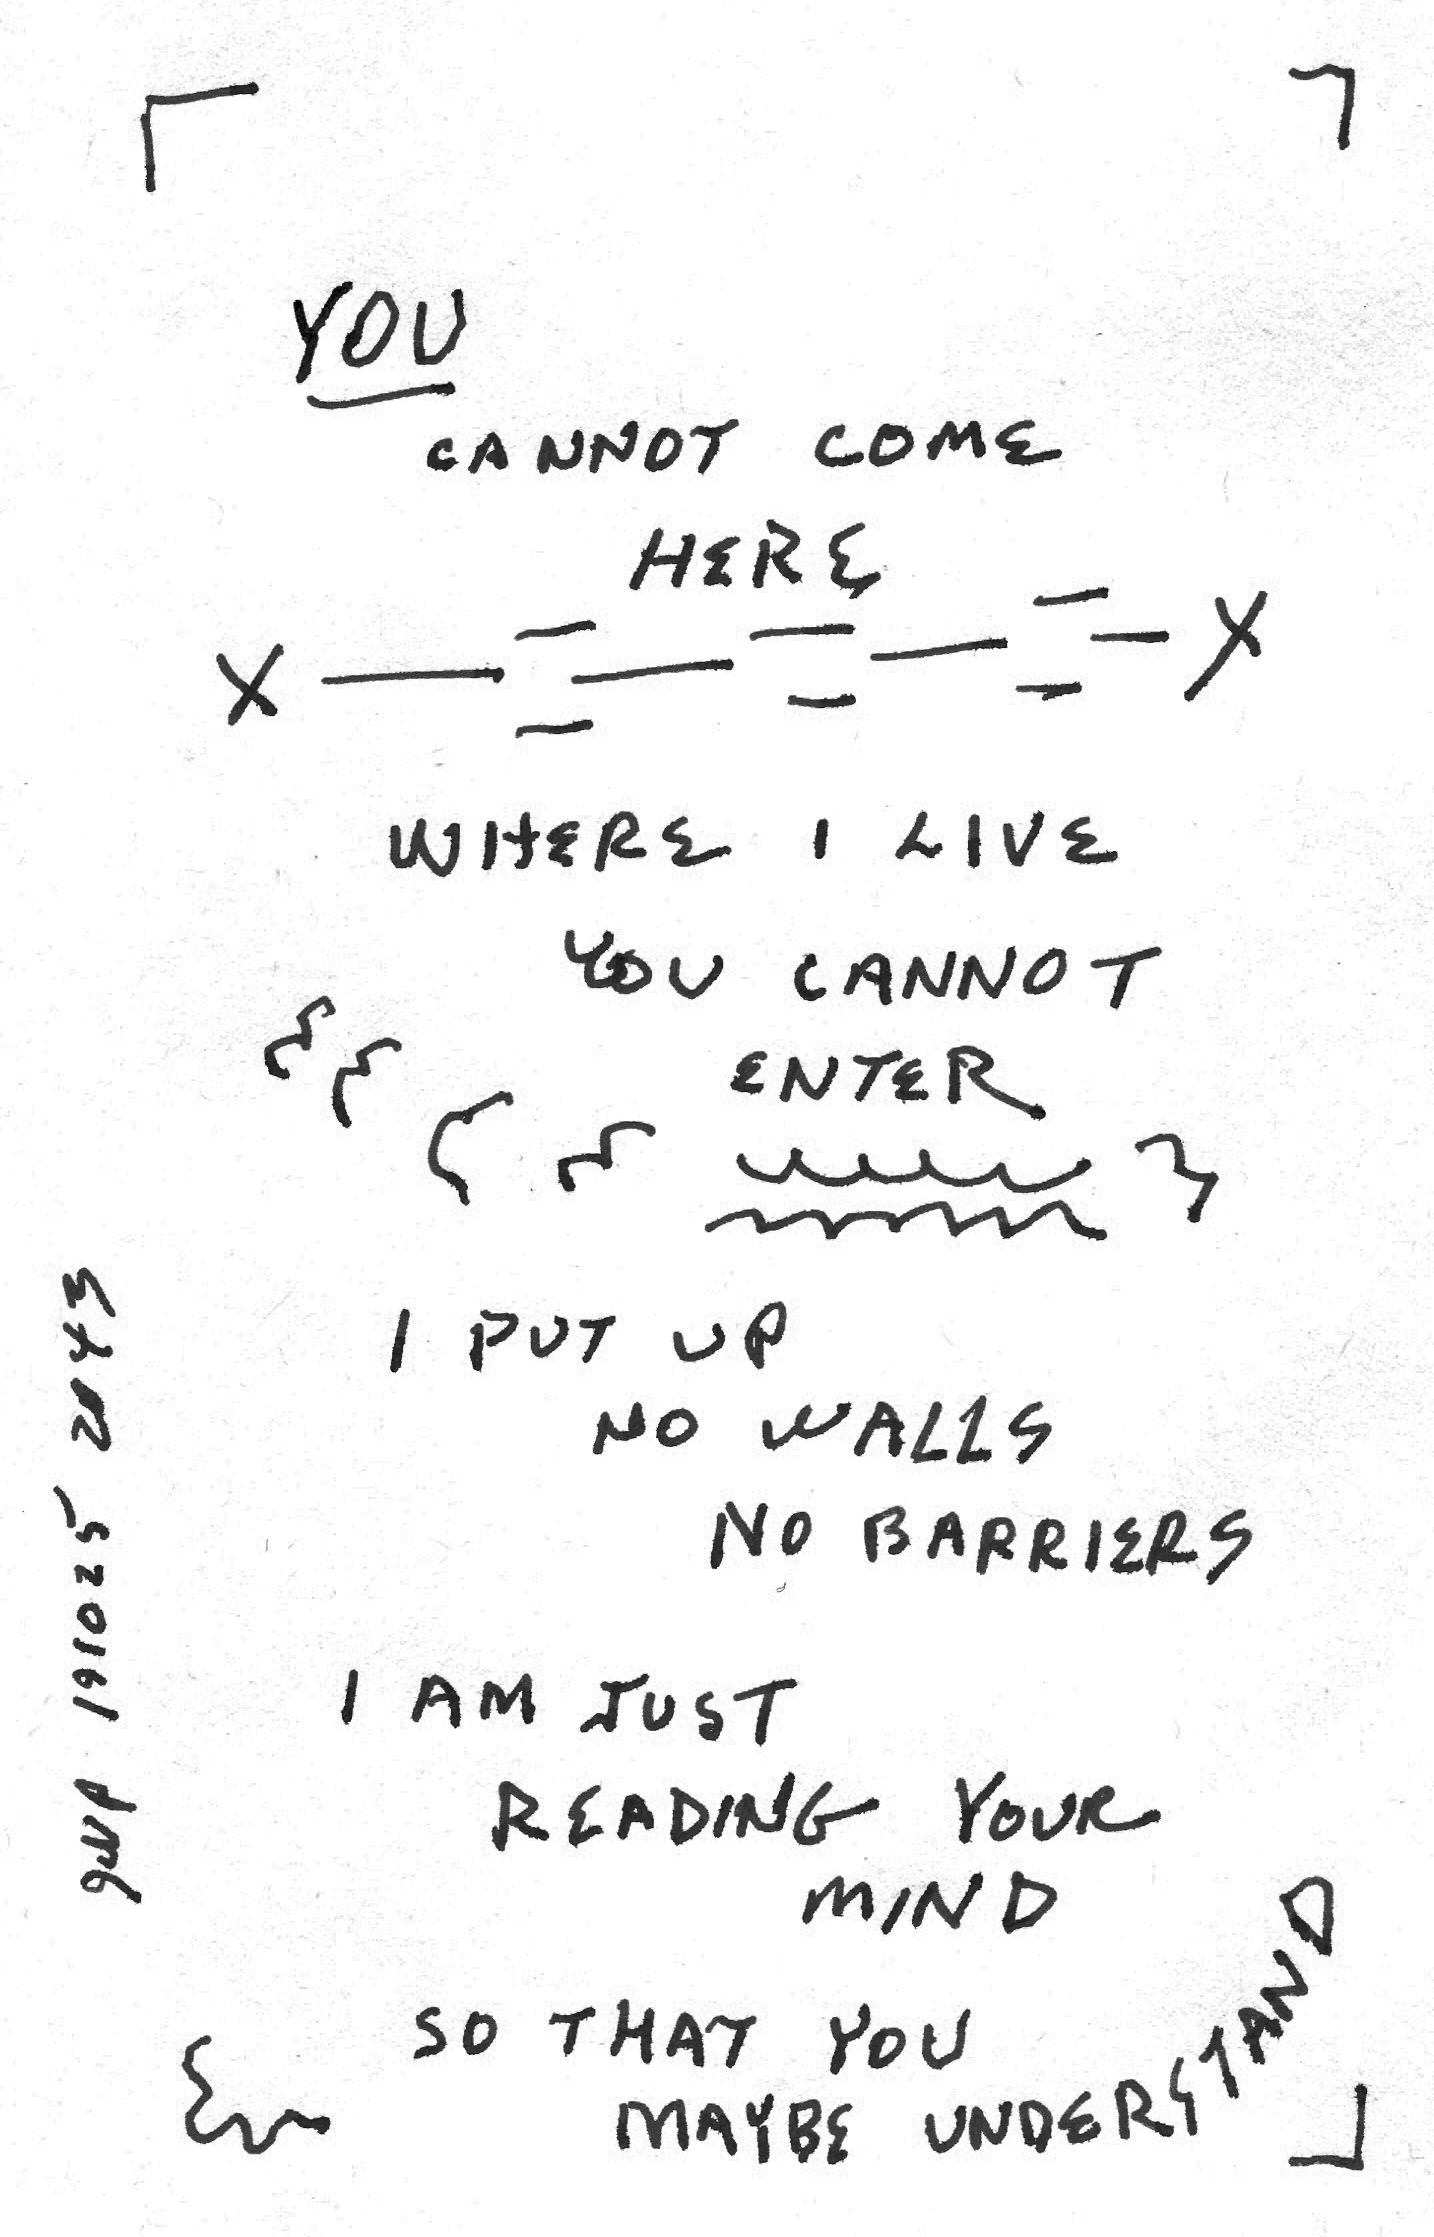 YOU
CANNOT COME
HERE
WHERE I LIVE
YOU CANNOT
ENTER
I PUT UP
NO WALLS
NO BARRIERS
I AM JUST
READING YOUR
MIND
SO THAT YOU
MAYBE UNDERSTAND
gwp 191025 2043